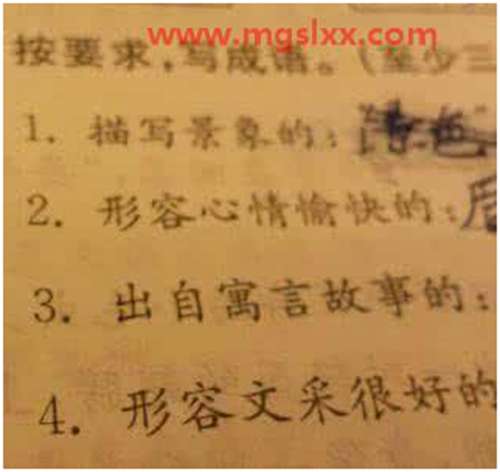 www.mgslxx.com
按要求,写成语。(至少三
1. 描写景象的:
2. 形容心情愉快的:
3. 出自寓言故事的:
4. 形容文采很好的